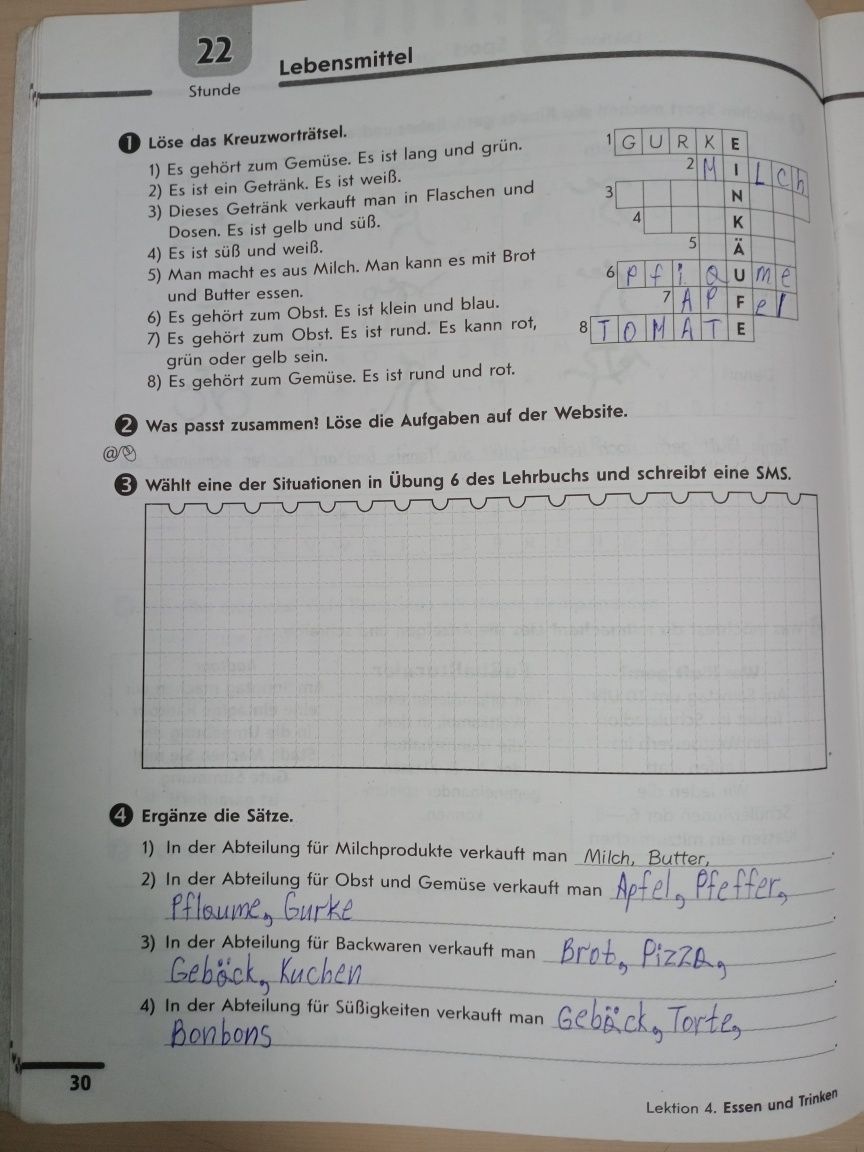 22
Stunde
Lebensmittel
1 Löse das Kreuzworträtsel.
1) Es gehört zum Gemüse. Es ist lang und grün.
2) Es ist ein Getränk. Es ist weiß.
3) Dieses Getränk verkauft man in Flaschen und
Dosen. Es ist gelb und süß.
4) Es ist süß und weiß.
5) Man macht es aus Milch. Man kann es mit Brot
und Butter essen.
6) Es gehört zum Obst. Es ist klein und blau.
7) Es gehört zum Obst. Es ist rund. Es kann rot,
grün oder gelb sein.
8) Es gehört zum Gemüse. Es ist rund und rot.
1 G U R K E
2 M I L c h
3 N
4 K
5 Ä
6 P f l a U m e
7 A P F e l
8 T O M A T E
2 Was passt zusammen? Löse die Aufgaben auf der Website.
3 Wählt eine der Situationen in Übung 6 des Lehrbuchs und schreibt eine SMS.
4 Ergänze die Sätze.
1) In der Abteilung für Milchprodukte verkauft man Milch, Butter, .
2) In der Abteilung für Obst und Gemüse verkauft man Apfel, Pfeffer,
Pflaume, Gurke .
3) In der Abteilung für Backwaren verkauft man Brot, Pizza,
Gebäck, Kuchen .
4) In der Abteilung für Süßigkeiten verkauft man Gebäck, Torte,
Bonbons .
30
Lektion 4. Essen und Trinken